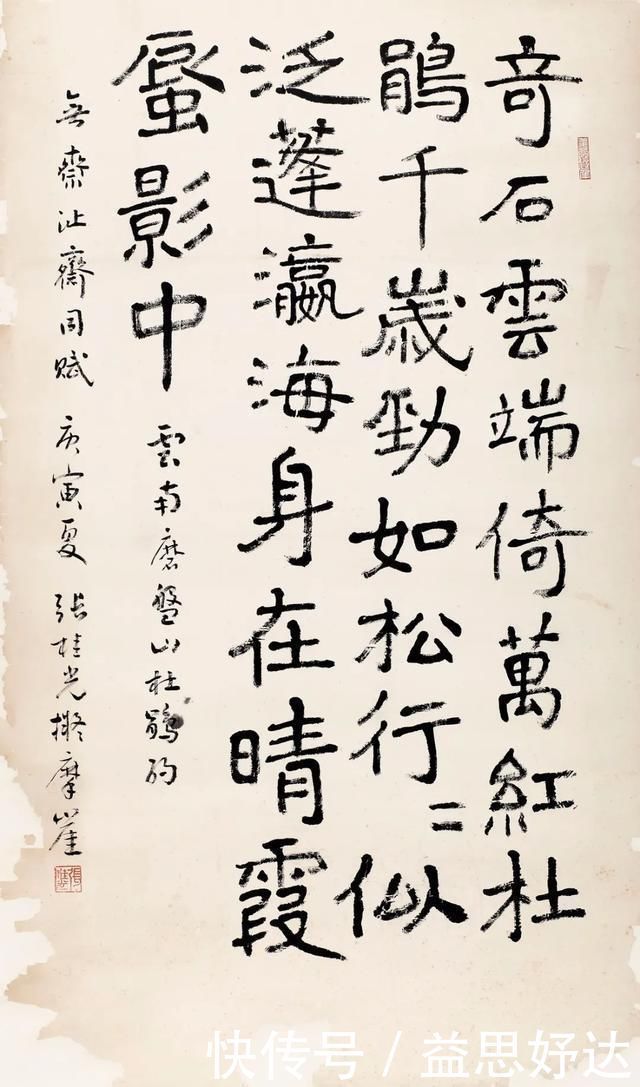 奇石雲端倚萬紅杜
鵑千歲勁如松行〻似
泛蓬瀛海身在晴霞
蜃影中
雲南磨盤山杜鵑
無齋沚齋同賦 庚寅夏 張桂光擬摩崖
快传号 / 益思妤达